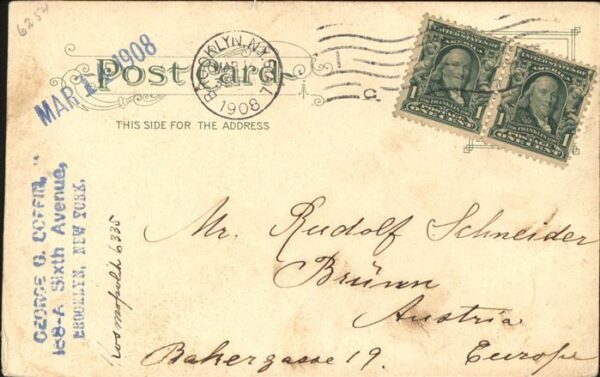 6252
Post Card
MAR 1 1908
BROOKLYN, N.Y.
1908
THIS SIDE FOR THE ADDRESS
UNITED STATES OF AMERICA
1 FRANKLIN 1
ONE CENT
UNITED STATES OF AMERICA
1 FRANKLIN 1
ONE CENT
GEORGE G. COFFIN,
168-A Sixth Avenue,
BROOKLYN, NEW YORK.
Kosmopolit 6335
Mr. Rudolf Schneider
Brünn
Austria
Bakergasse 19. Europe